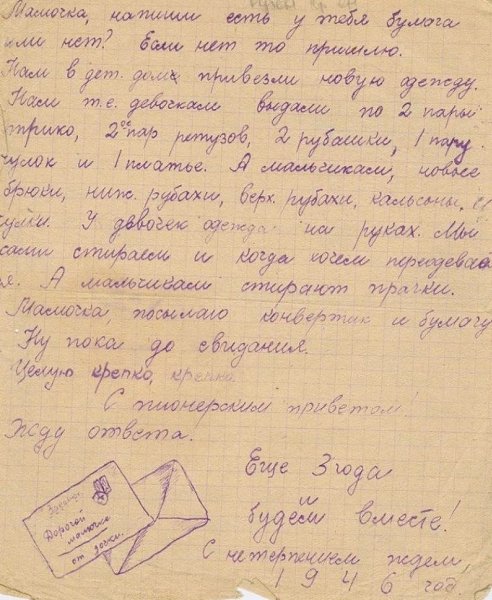 Мамочка, напиши есть у тебя бумага
или нет? Если нет то пришлю.
Нам в дет. доме привезли новую одежду.
Нам т.е. девочкам выдали по 2 пары
трико, 2 пар ретузов, 2 рубашки, 1 пару
чулок и 1 платье. А мальчикам, новые
брюки, ниж. рубахи, верх. рубахи, кальсоны,
У девочек одежда на руках. Мы
сами стираем и когда хочем переодевае
я. А мальчикам стирают прачки.
Мамочка, посылаю конвертик и бумагу
Ну пока до свидания.
Целую крепко, крепко
С пионерским приветом!
Жду ответа.
Дорогой
мамочке
от дочки.
Еще 3 года
и
будем вместе!
С нетерпением ждем,
1946 год